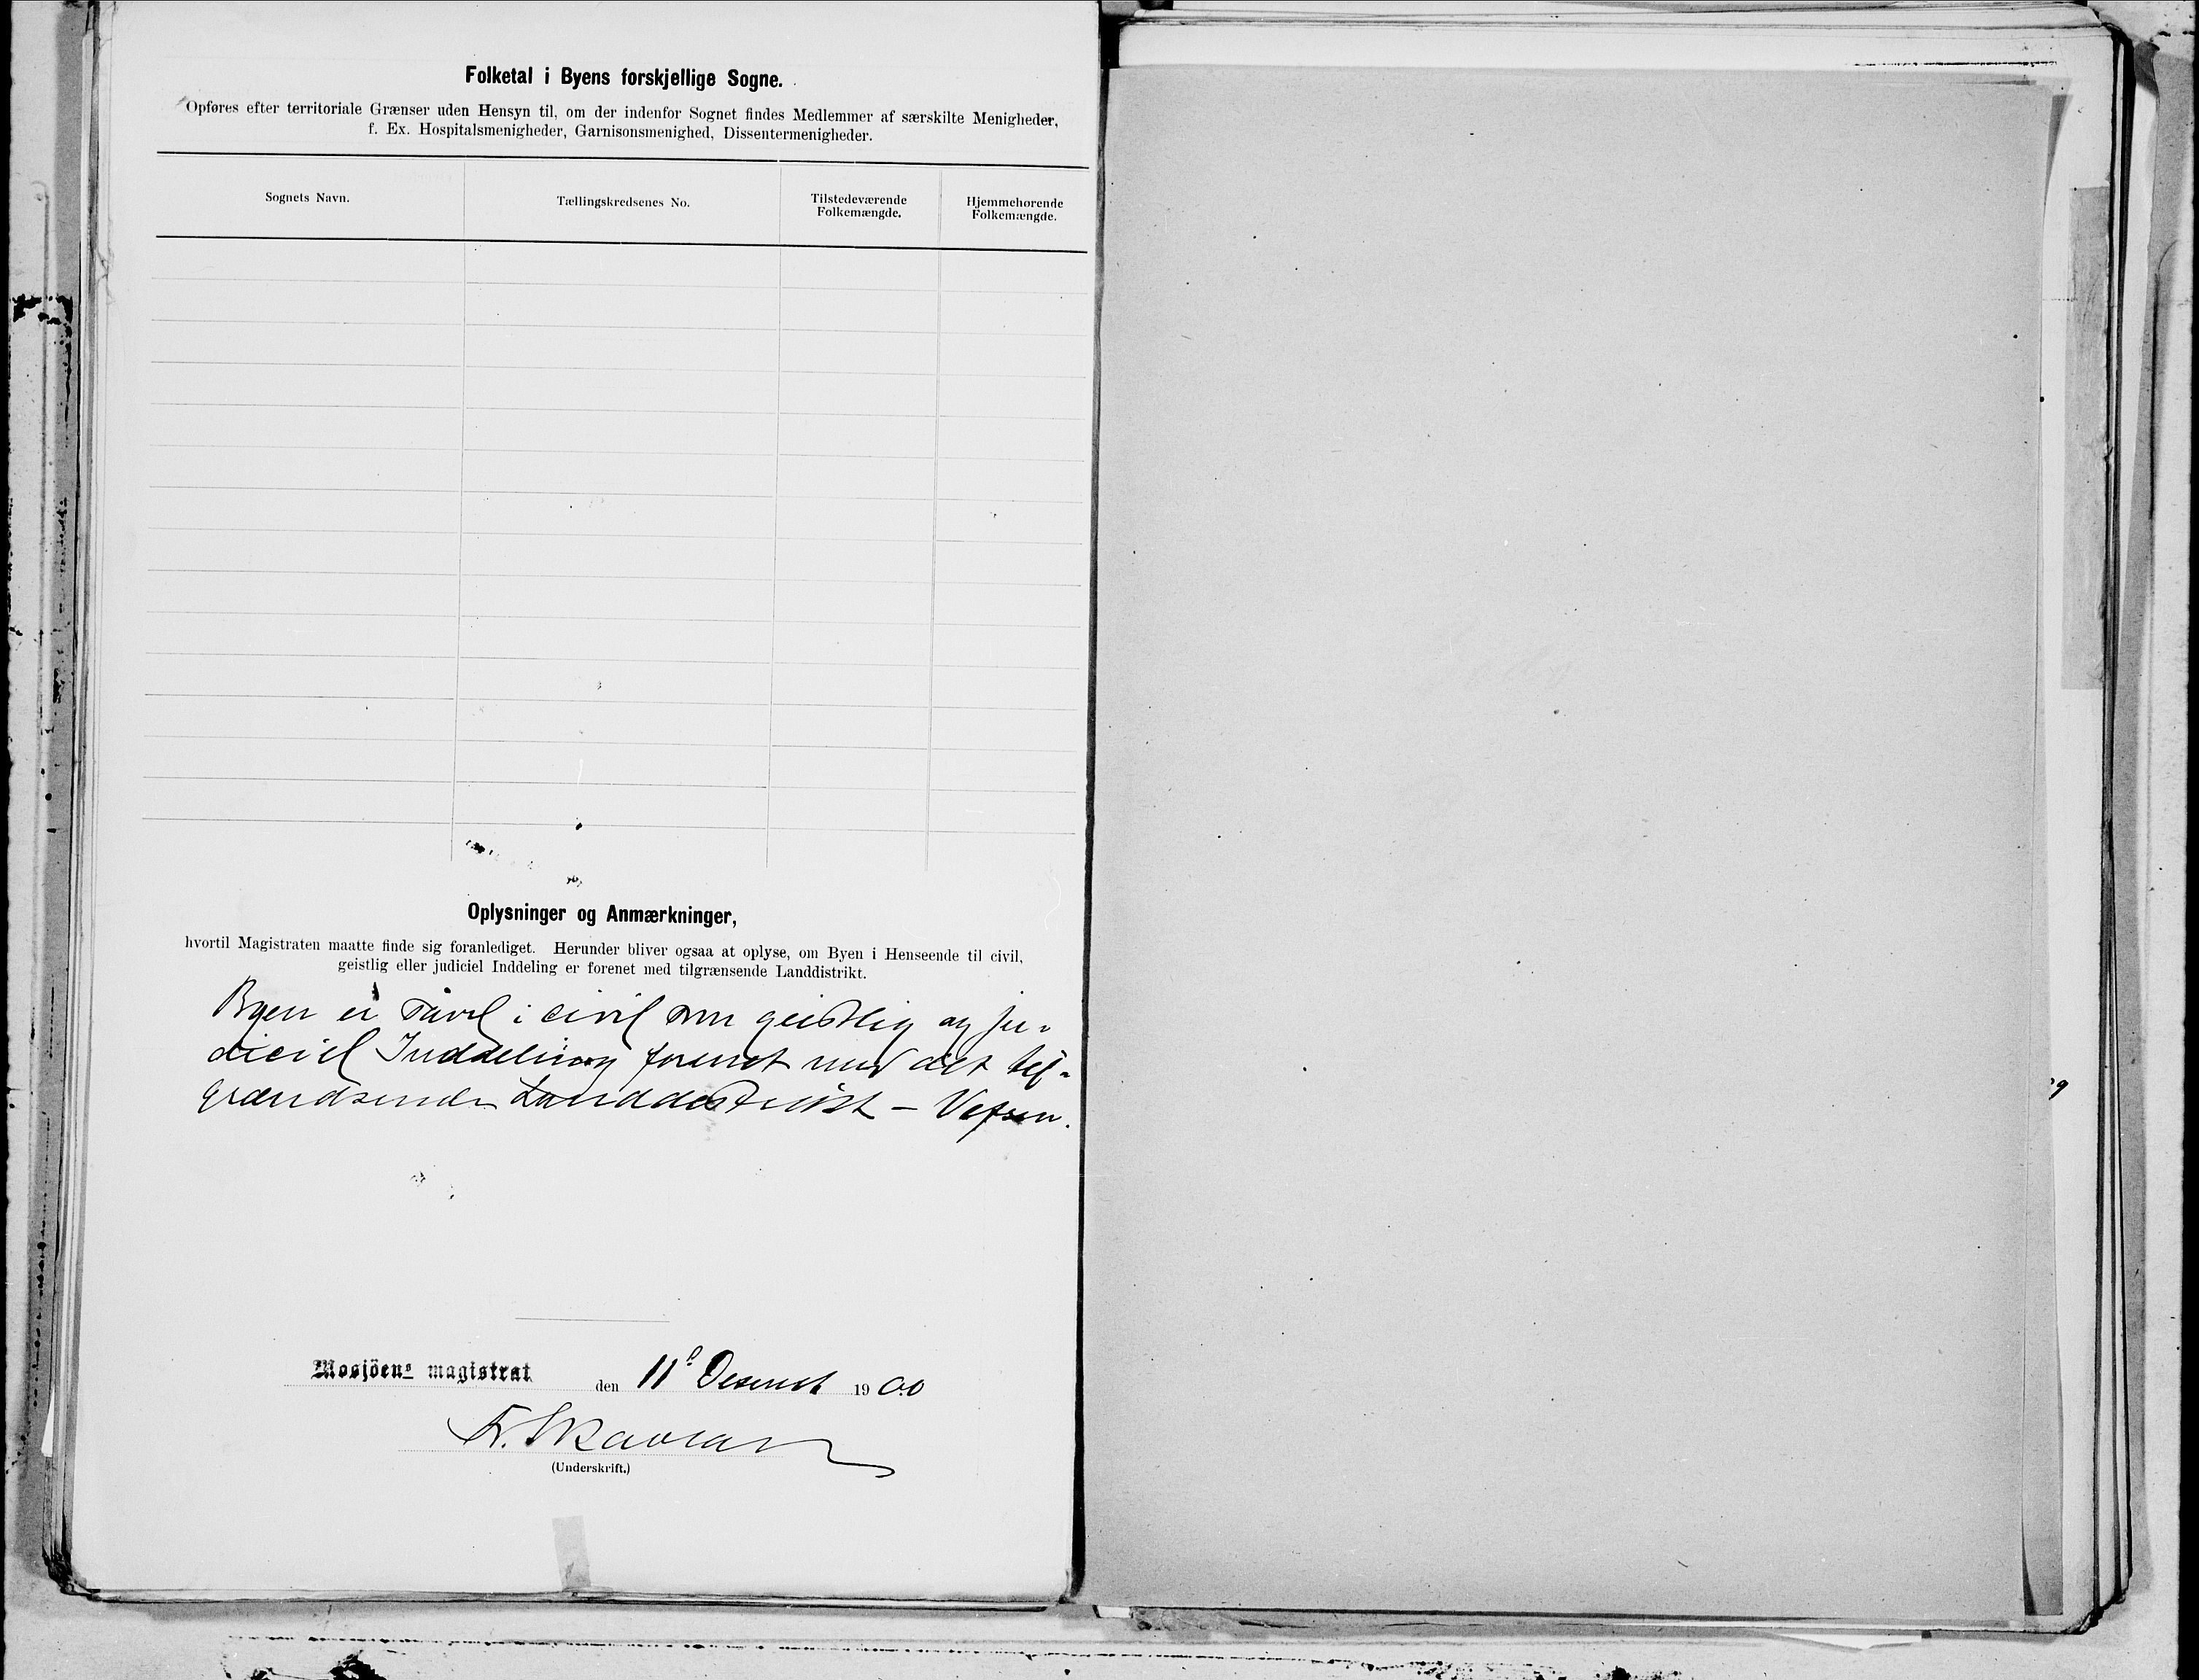 Folketal i Byens forskjellige Sogne.
Opføres efter territoriale Grænser uden Hensyn til, om der indenfor Sognet findes Medlemmer af særskilte Menigheder,
f. Ex. Hospitalsmenigheder, Garnisonsmenighed, Dissentermenigheder.
Sognets Navn.
Tællingskredsenes No.
Tilstedeværende
Folkemængde.
Hjemmehørende
Folkemængde.
Oplysninger og Anmærkninger,
hvortil Magistraten maatte finde sig foranlediget. Herunder bliver ogsaa at oplyse, om Byen i Henseende til civil,
geistlig eller judiciel Inddeling er forenet med tilgrænsende Landdistrikt.
Byen er såvel i civil som geistlig og ju-
diciel Inddeling forenet med det til-
grændsende Landdistrikt – Vefsen.
Mosjöens magistrat den 11 Decembr 1900
Fr. Skavlan
(Underskrift.)